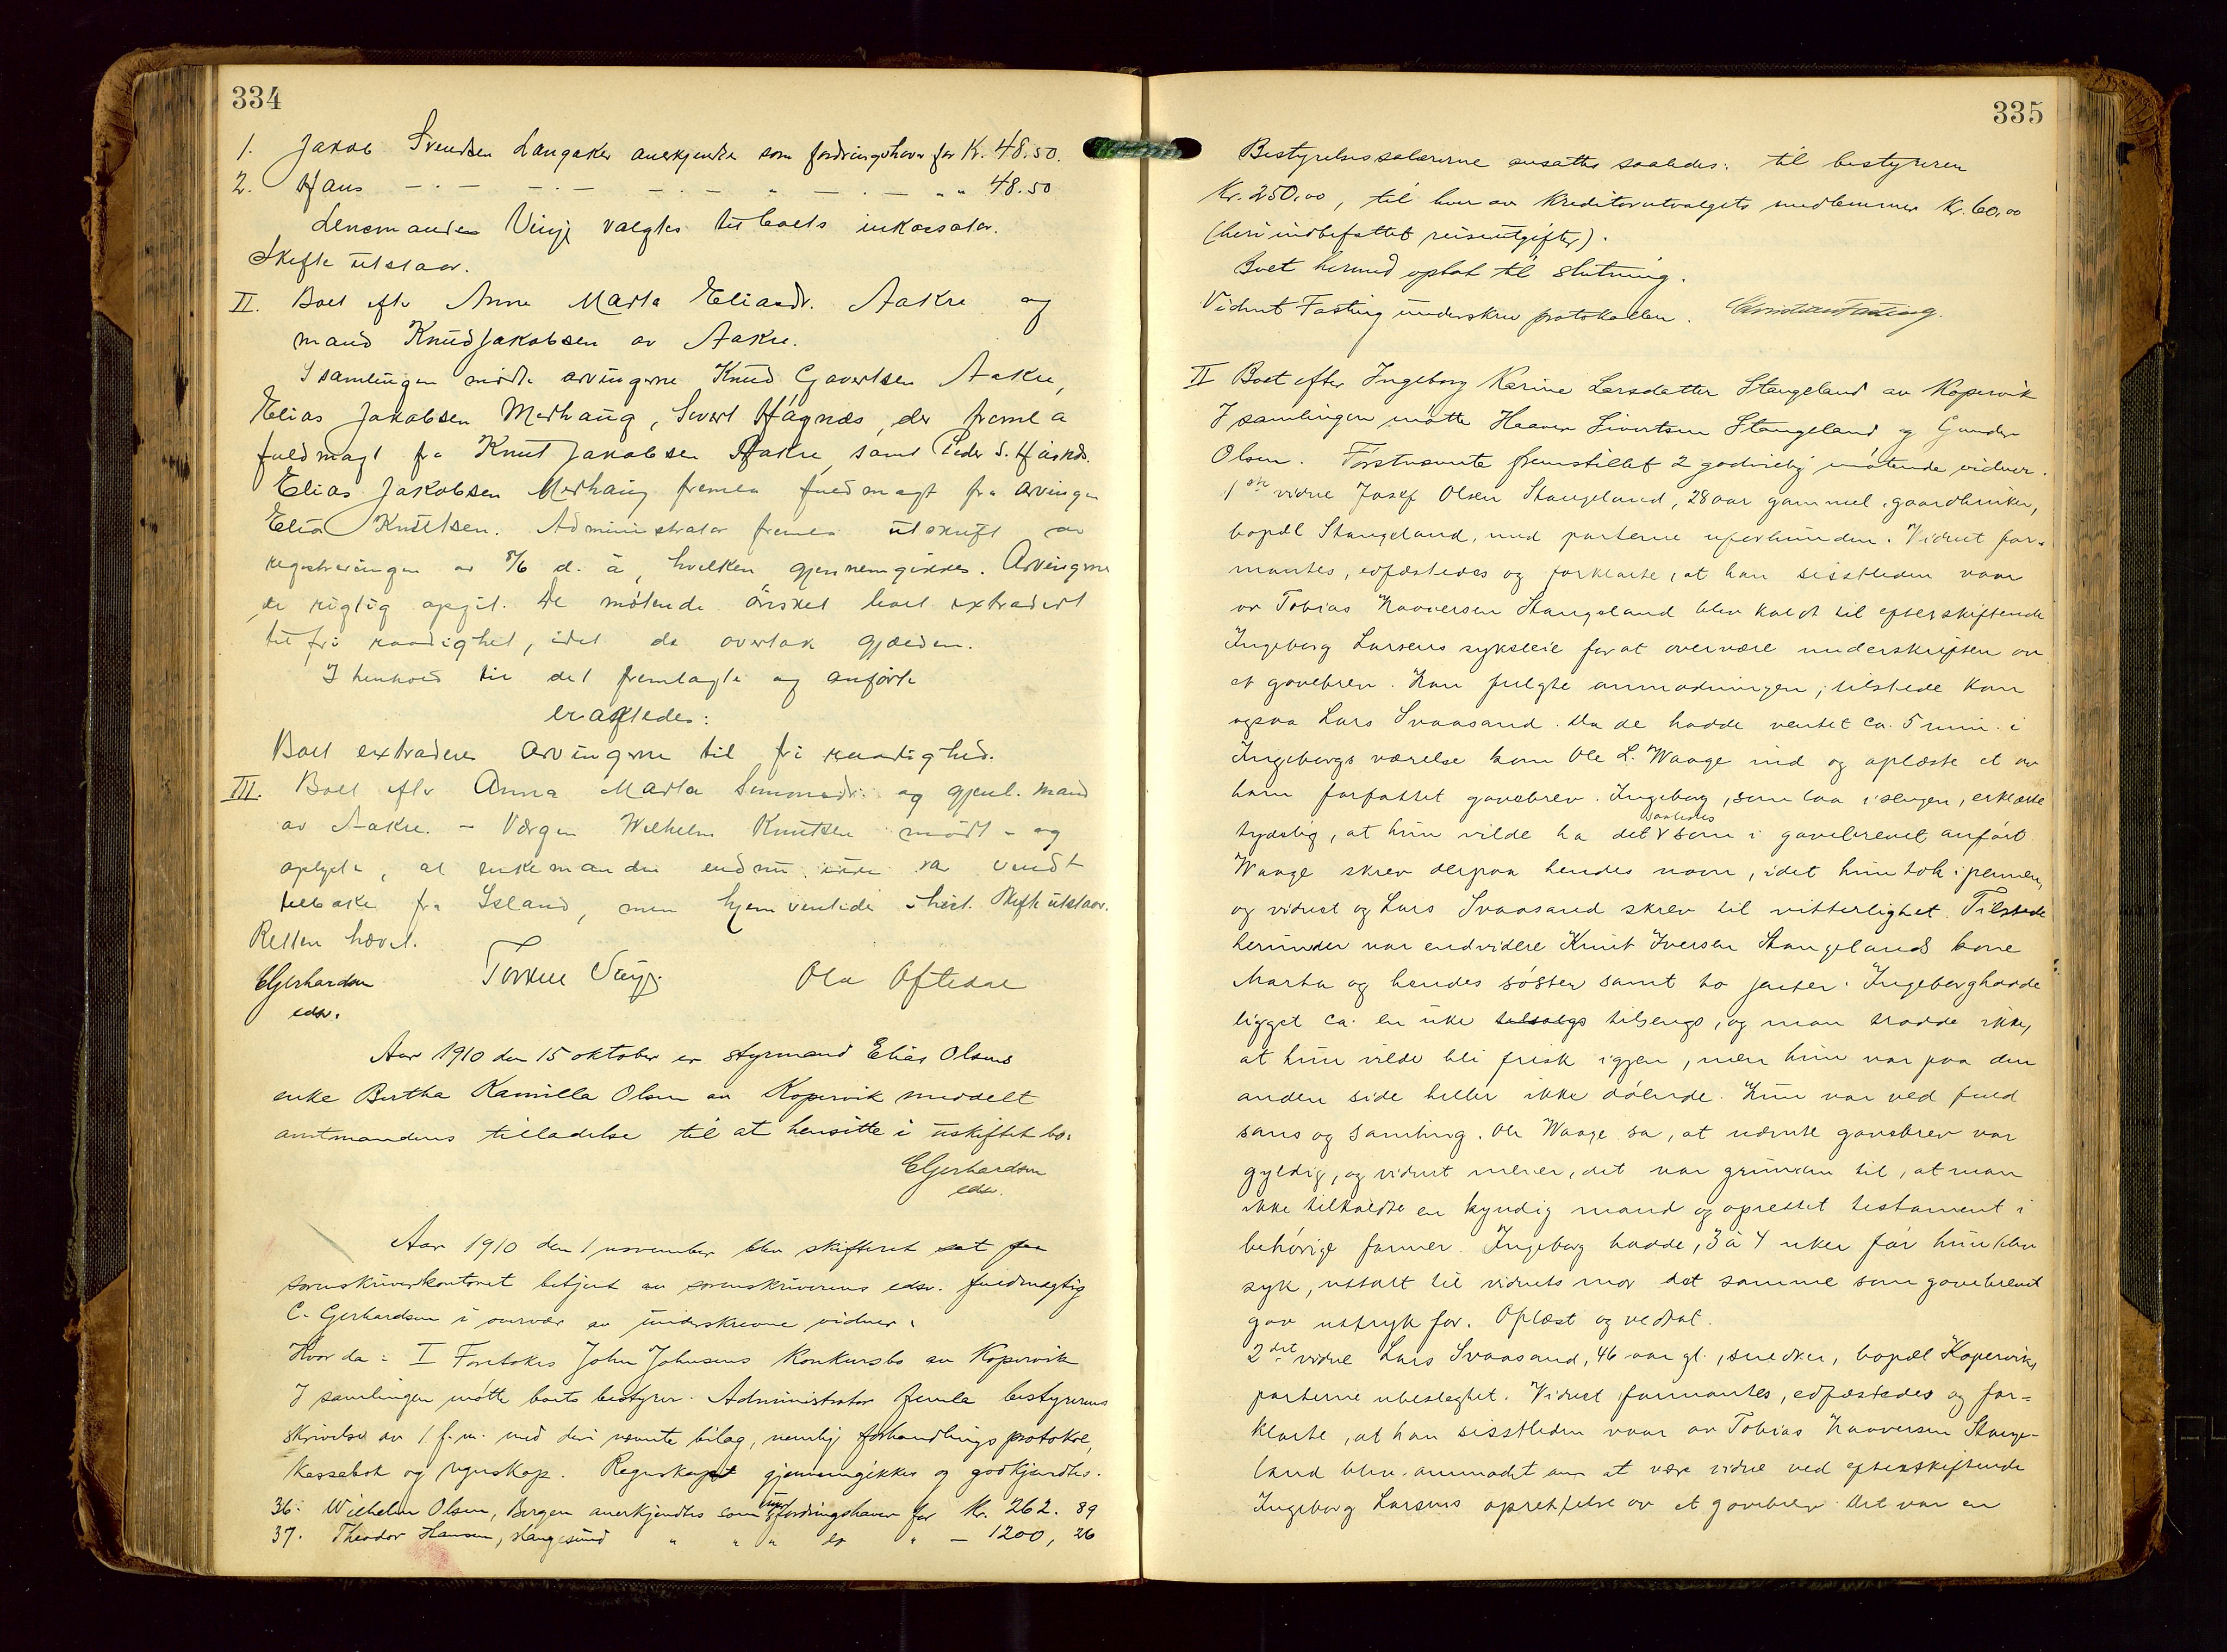 334
1. Jakob Svendsen Langaker anerkjendte som fordringshaver for Kr. 48.50.
2. Hans — · — — · — — · — " — · — " " 48.50
Lensmanden Vinje valgtes til boets inkassator.
Skifte utstaar.
II. Boet eftr Anne Marta Eliasdr. Aakre og
mand Knud Jakobsen av Aakre.
I samlingen mødte arvingerne Knud Govertsen Aakre,
Elias Jakobsen Medhaug, Sivert Høgnæs, der fremla
fuldmagt fra Knut Jakobsen Aakre, samt Peder S.
Elias Jakobsen Medhaug fremla fuldmagt fra arvingen
Knutsen. Administrator fremla utskrift av
registreringen av 8/6 d. å, hvilken gjennemgikkes. Arvingerne
er rigtig opgit. De møtende ønsket boet extradert
til fri raadighet, idet de overtok gjælden.
I henhold til det fremlagte og anførte
eragtedes:
Boet extraderes arvingerne til fri raadighed.
III. Boet eftr Anna Marta Simonsdr. og gjenl. mand
av Aakre. – Værgen Wilhelm Knutsen mødt – og
oplyste, at enkemanden endnu ikke var vendt
tilbake fra Island, men hjemventede i høst. Skifte utstaar.
Retten hævet.
CGerhardsen Torkel Vinje. Ola Oftedal
edsv.
Aar 1910 den 15 oktober er styrmand Elias Olsens
enke Bertha Kamilla Olsen av Kopervik meddelt
amtmandens tilladelse til at hensitte i uskiftet bo.
CGerhardsen
edsv.
Aar 1910 den 1 november blev skifteret sat paa
sorenskriverkontoret betjent av sorenskriverens edsv. fuldmægtig
C. Gerhardsen i overvær av underskrevne vidner.
Hvor da: I Foretokes John Johnsens konkursbo av Kopervik
I samlingen møtte boets bestyrer. Administrator fremla bestyrerens
skrivelse av 1 f. m. med deri nævnte bilag, nemlig forhandlingsprotokol,
kassebok og regnskap. Regnskapet gjennemgikkes og godkjendtes.
36. Wilhelm Olsen, Bergen anerkjendtes som fordringshaver for Kr. 262. 89
37. Theodor Hansen, Haugesund " " " do " — 1200, 26
335
Bestyrelsessalærerne ansattes saaledes: til bestyreren
Kr. 250,00, til hver av kreditorutvalgets medlemmer Kr. 60,00
(heri indbefattet reiseutgifter).
Boet hermed optat til slutning.
Vidnet Fasting underskrev protokollen. Christian Fasting.
II Boet efter Ingeborg Karine Larsdatter Stangeland av Kopervik
I samlingen møtte Haaver Sivertsen Stangeland og Gunder
Olsen. Førstnævnte fremstillet 2 godvillig møtende vidner.
1ste vidne Josef Olsen Stangeland, 28 aar gammel, gaardbruker,
bopæl Stangeland, med parterne uforbunden. Vidnet for-
mantes, edfæstedes og forklarte, at han sisstleden vaar
av Tobias Haaversen Stangeland blev kaldt til efterskiftende
Ingeborg Larsens sykeleie for at overvære underskriften av
et gavebrev. Han fulgte anmodningen; tilstede kom
ogsaa Lars Svaasand. Da de hadde ventet ca. 5 min. i
Ingeborgs værelse kom Ole L. Waage ind og oplæste et av
ham forfattet gavebrev. Ingeborg, som laa i sengen, erklærte
tydelig, at hun vilde ha det saaledes som i gavebrevet anført.
Waage skrev derpaa hendes navn, idet hun tok i pennen,
og vidnet og Lars Svaasand skrev til vitterlighet. Tilstede
herunder var endvidere Knut Iversen Stangelands kone
Marta og hendes søster samt to jenter. Ingeborg hadde
ligget ca. en uke tilsengs, og man trodde ikke,
at hun vilde bli frisk igjen, men hun var paa den
anden side heller ikke døende. Hun var ved fuld
sans og samling. Ole Waage sa, at nævnte gavebrev var
gyldig, og vidnet mener, det var grunden til, at man
ikke tilkaldte en kyndig mand og oprettet testament i
behørige former. Ingeborg hadde, 3 à 4 uker før hun blev
syk, uttalt til vidnets mor det samme som gavebrevet
gav uttryk for. Oplæst og vedtat.
2det vidne Lars Svaasand, 46 aar gl., snedker, bopæl Kopervik,
parterne ubeslegtet. Vidnet formantes, edfæstedes og for-
klarte, at han sisstleden vaar av Tobias Haaversen Stange-
land blev anmodet om at være vidne ved efterskiftende
Ingeborg Larsens oprettelse av et gavebrev. Det var en